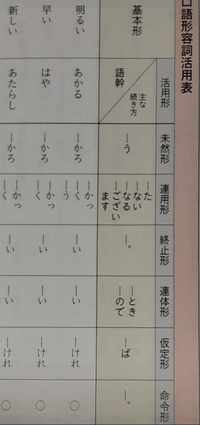 口語形容詞活用表
活用形
主な続き方
語幹
基本形
未然形
連用形
終止形
連体形
仮定形
命令形
―う
―た
―ない
―なる
―ござい
ます
―。
―とき
―ので
―ば
―。
明るい
あかる
―かろ
―かっ
―く
―う
―い
―い
―けれ
○
早い
はや
―かろ
―かっ
―く
―い
―い
―けれ
○
新しい
あたらし
―かろ
―かっ
―く
―い
―い
―けれ
○